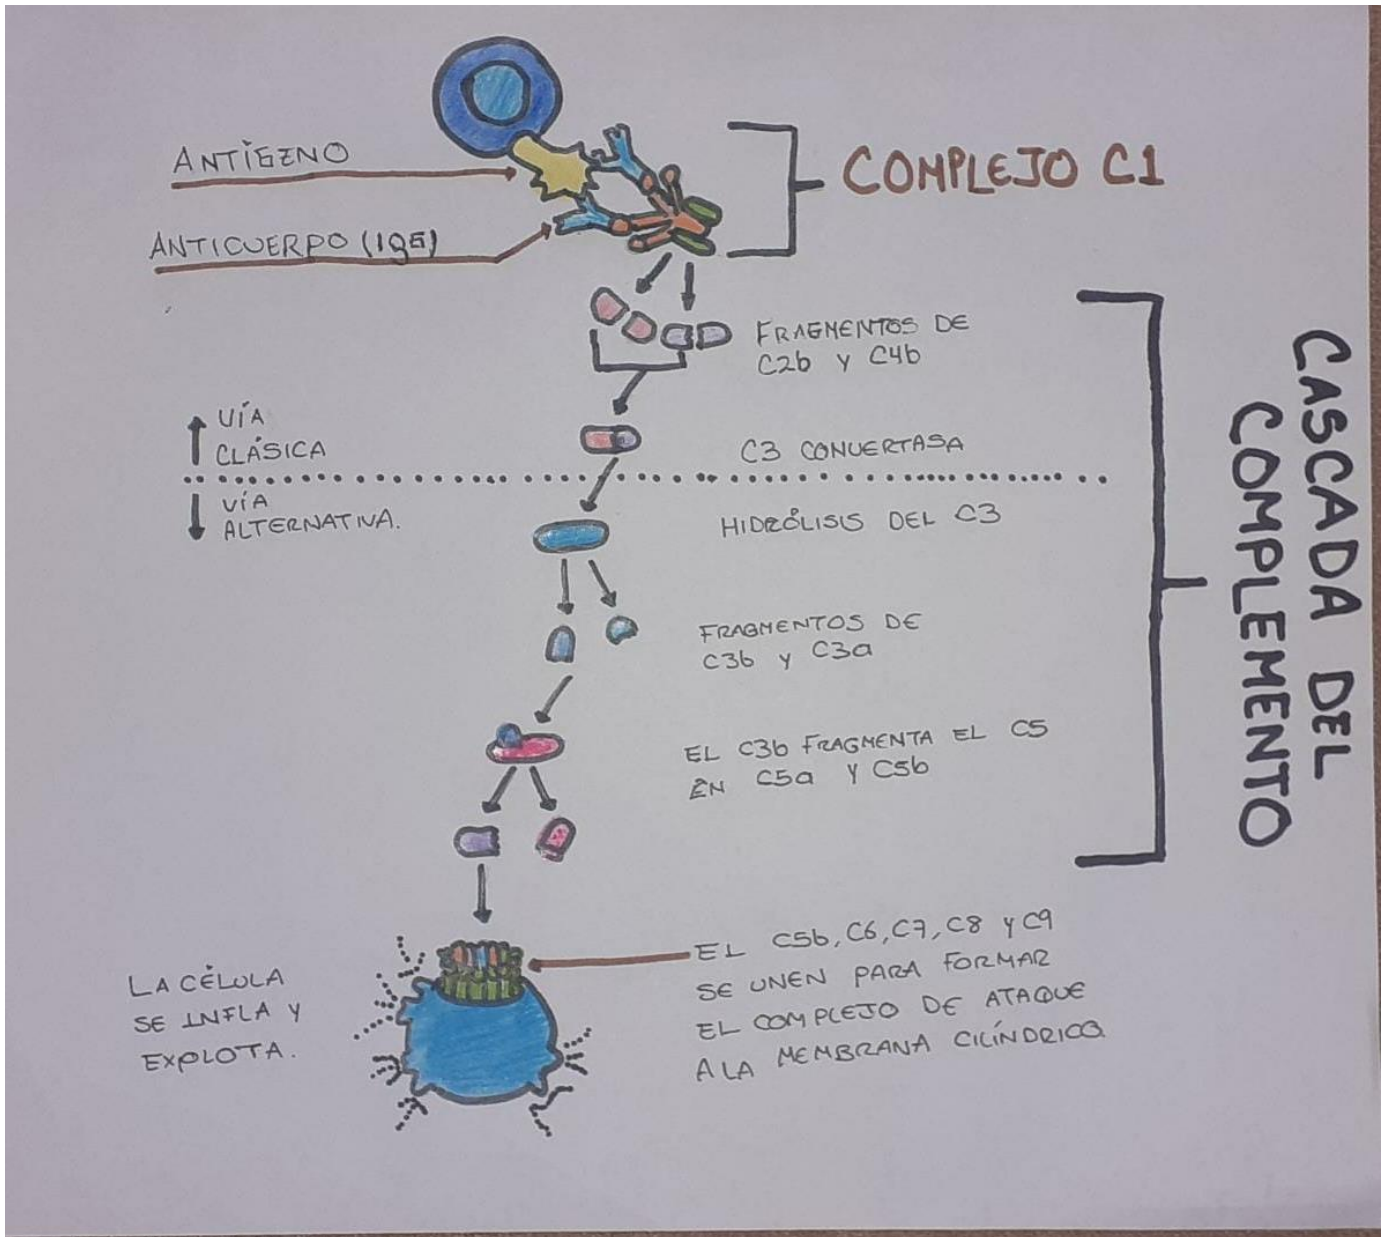 ANTÍGENO
COMPLEJO C1
ANTICUERPO (IgG)
FRAGMENTOS DE
C2b Y C4b
VÍA
CLÁSICA
C3 CONVERTASA
VÍA
ALTERNATIVA.
HIDRÓLISIS DEL C3
FRAGMENTOS DE
C3b Y C3a
EL C3b FRAGMENTA EL C5
EN C5a Y C5b
CASCADA DEL
COMPLEMENTO
LA CÉLULA
SE INFLA Y
EXPLOTA.
EL C5b, C6, C7, C8 Y C9
SE UNEN PARA FORMAR
EL COMPLEJO DE ATAQUE
A LA MEMBRANA CILÍNDRICO.